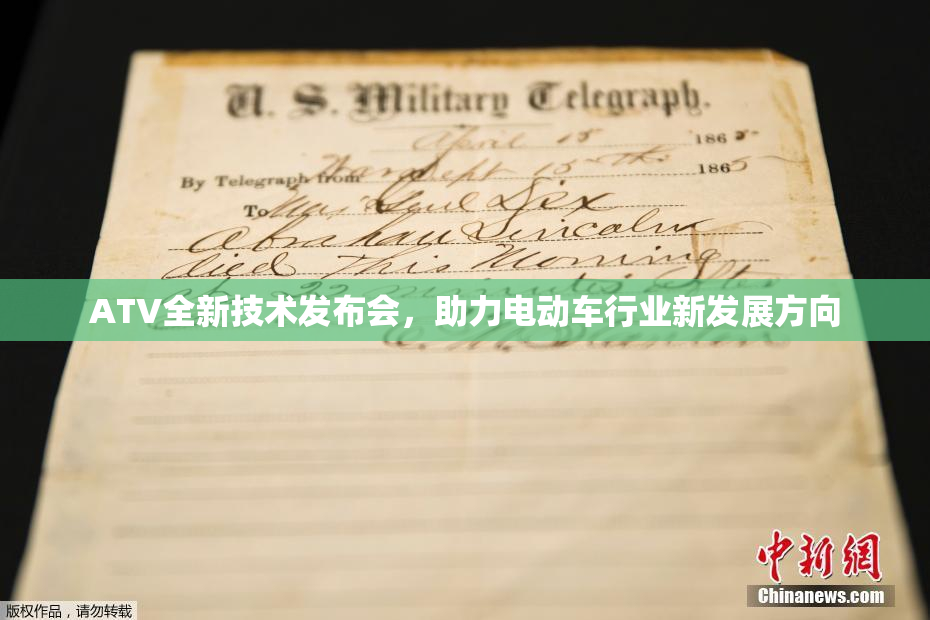 U. S. Military Telegraph.
April 15 1865
By Telegraph from War Dept 15th 1865
To Maj Genl Dix
Abraham Lincoln
died This Morning
at 22 minutes after
ATV全新技术发布会，助力电动车行业新发展方向
E. M. Stanton
中新网
Chinanews.com
版权作品，请勿转载